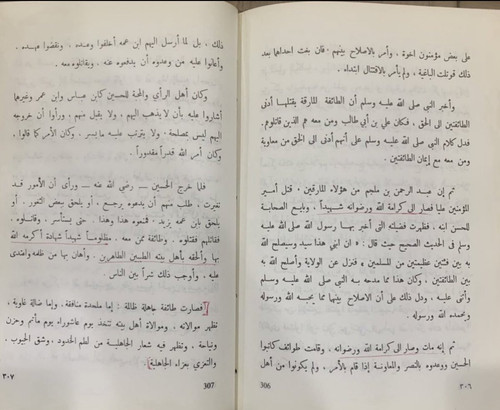 على بعض مؤمنون اخوة ، وأمر بالاصلاح بينهم . فان بغت احداهما بعد
ذلك قوتلت الباغية ، ولم يأمر بالاقتتال ابتداء .
وأخبر النبي صلى الله عليه وسلم أن الطائفة المارقة يقتلها أدنى
الطائفتين الى الحق ، فكان علي بن أبي طالب ومن معه هم الذين قاتلوهم .
فدل كلام النبي صلى الله عليه وسلم على أنهم أدنى الى الحق من معاوية
ومن معه مع إيمان الطائفتين .
ثم إن عبد الرحمن بن ملجم من هؤلاء المارقين ، قتل أمير
المؤمنين عليا فصار الى كرامة الله ورضوانه شهيداً ، وبايع الصحابة
للحسن ابنه ، فظهرت فضيلته التي أخبر بها رسول الله صلى الله عليه
وسلم في الحديث الصحيح حيث قال : « ان ابني هذا سيد وسيصلح الله
به بين فئتين عظيمتين من المسلمين » فنزل عن الولاية وأصلح الله به
بين الطائفتين ، وكان هذا مما مدحه به النبي صلى الله عليه وسلم
وأثنى عليه . ودل ذلك على أن الاصلاح بينهما مما يحبه الله ورسوله
ويحمده الله ورسوله .
ثم إنه مات وصار الى كرامة الله ورضوانه ، وقامت طوائف كاتبوا
الحسين ووعدوه بالنصر والمعاونة إذا قام بالأمر ، ولم يكونوا من أهل
٣٠٦
306
ذلك ، بل لما أرسل اليهم ابن عمه أخلفوا وعده ، ونقضوا عهده ،
وأعانوا عليه من وعدوه أن يدفعوه عنه ، ويقاتلوه معه .
وكان أهل الرأي والمحبة للحسين كابن عباس وابن عمر وغيرهما
أشاروا عليه بأن لا يذهب اليهم ، ولا يقبل منهم ، ورأوا أن خروجه
اليهم ليس بمصلحة ، ولا يترتب عليه ما يسر ، وكان الأمر كما قالوا ،
وكان أمر الله قدراً مقدوراً .
فلما خرج الحسين – رضي الله عنه – ورأى أن الأمور قد
تغيرت ، طلب منهم أن يدعوه يرجع ، أو يلحق ببعض الثغور ، أو
يلحق بابن عمه يزيد ، فمنعوه هذا وهذا . حتى يستأسر ، وقاتلوه ،
فقاتلهم فقتلوه . وطائفة ممن معه . مظلوماً شهيداً شهادة أكرمه الله
بها وألحقه بأهل بيته الطيبين الطاهرين . وأهان بها من ظلمه واعتدى
عليه ، وأوجب ذلك شراً بين الناس .
فصارت طائفة جاهلة ظالمة : إما ملحدة منافقة ، وإما ضالة غاوية ،
تظهر موالاته ، وموالاة أهل بيته تتخذ يوم عاشوراء يوم مأتم وحزن
ونياحة ، وتظهر فيه شعار الجاهلية من لطم الخدود ، وشق الجيوب ،
والتعزي بعزاء الجاهلية .
٣٠٧
307